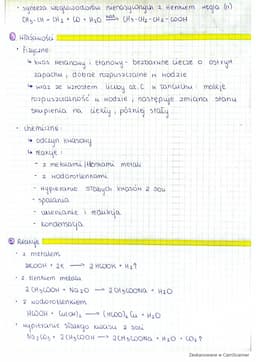 • synteza węglowodorów nienasyconych z tlenkiem węgla (II)
CH₃-CH=CH₂ + CO + H₂O → CH₃-CH₂-CH₂-COOH
Właściwości
• fizyczne:
↳ kwas metanowy i etanowy - bezbarwne ciecze o ostrym
zapachu, dobrze rozpuszczalne w wodzie
↳ wraz ze wzrostem liczby at. C w łańcuchu maleje
rozpuszczalność w wodzie, następuje zmiana stanu
skupienia na ciekły, później stały.
• chemiczne:
↳ odczyn kwasowy
↳ reakcje:
- z metalami/tlenkami metali
- z wodorotlenkami
- wypieranie słabych kwasów z soli
- spalania
- utlenianie i redukcja
- kondensacja
Reakcje
• z metalem
2HCOOH + 2K → 2HCOOK + H₂↑
• z tlenkiem metalu
2CH₃COOH + Na₂O → 2CH₃COONa + H₂O
• z wodorotlenkiem
HCOOH + Cu(OH)₂ → (HCOO)₂Cu + H₂O
• wypieranie słabego kwasu z soli
Na₂CO₃ + 2CH₃COOH → 2CH₃COONa + H₂O + CO₂↑
Zeskanowane w CamScanner